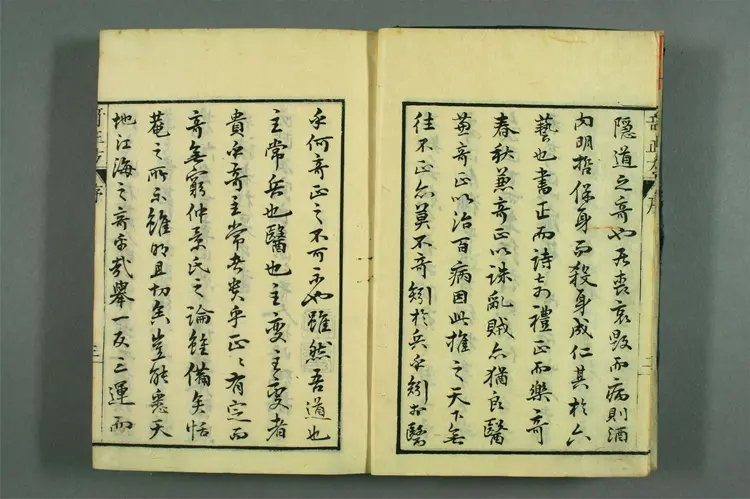 奇正方 序
隱道之奇也居喪哀毀而病則酒
肉明哲保身而殺身成仁其於六
藝也書正而詩奇禮正而樂奇
春秋兼奇正以誅亂賊亦猶良醫
兼奇正以治百病因此推之天下無
往不正亦莫不奇矧於兵乎矧於醫
乎何奇正之不可示也雖然吾道也
主常兵也醫也主變主變者
貴乎奇主常者貴乎正正有定而
奇無窮仲景氏之論雖備矣恬
菴之所示雖明且切矣豈能悉天
地江海之奇乎哉舉一反三運而
奇正方 序 三